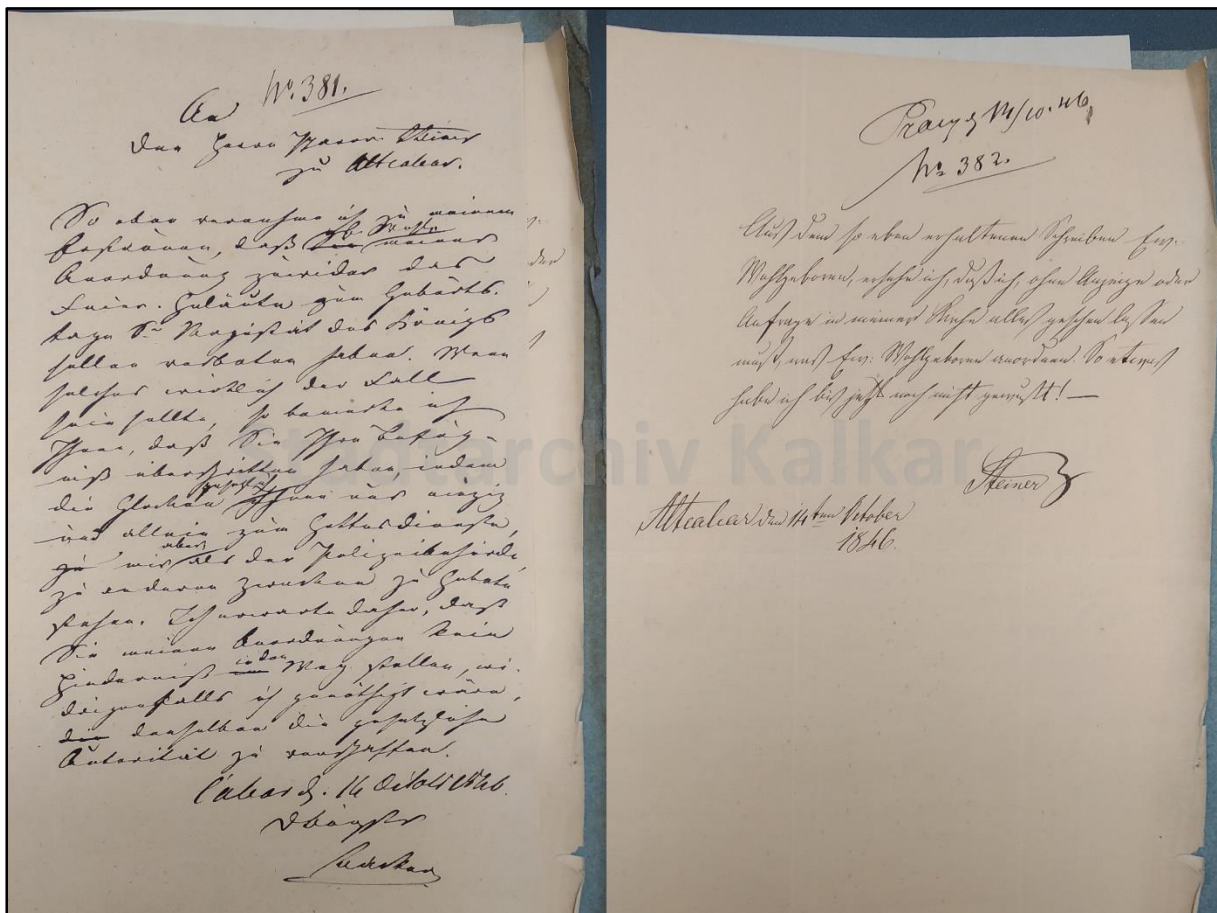 No. 381.
An
den Herrn Pfarrer Steiner
zu Altcalcar.
So eben vernehme ich zu meinem
Erstaunen, daß meiner
Anordnung zuwider das
Feier-Geläute zum Geburts-
tage Sr. Majestät des Königs
sollen verboten haben. Wenn
solches wirklich der Fall
sein sollte, so bemerke ich
Ihnen, daß Sie Ihre Befug-
niß überschritten haben, indem
die Glocken Ihnen nur einzig
und allein zum Gottesdienste,
mir aber als der Polizeibehörde
zu anderen Zwecken zu Gebote
stehen. Ich erwarte daher, daß
Sie meinen Anordnungen kein
Hinderniß in den Weg stellen, wi-
drigenfalls ich genöthigt wäre,
denselben die gesetzliche
Autorität zu verschaffen.
Calcar d. 14 October 1846.
Praes. d. 14/10. 46
No. 382.
Aus dem so eben erhaltenen Schreiben Ew:
Wohlgeboren, ersehe ich, daß ich, ohne Anzeige oder
Anfrage in meiner Kirche alles geschehen lassen
muß, was Ew: Wohlgeboren anordnen. So etwas
habe ich bis jetzt noch nicht gewußt! —
Steiner
Altcalcar den 14ten October
1846.
Stadtarchiv Kalkar